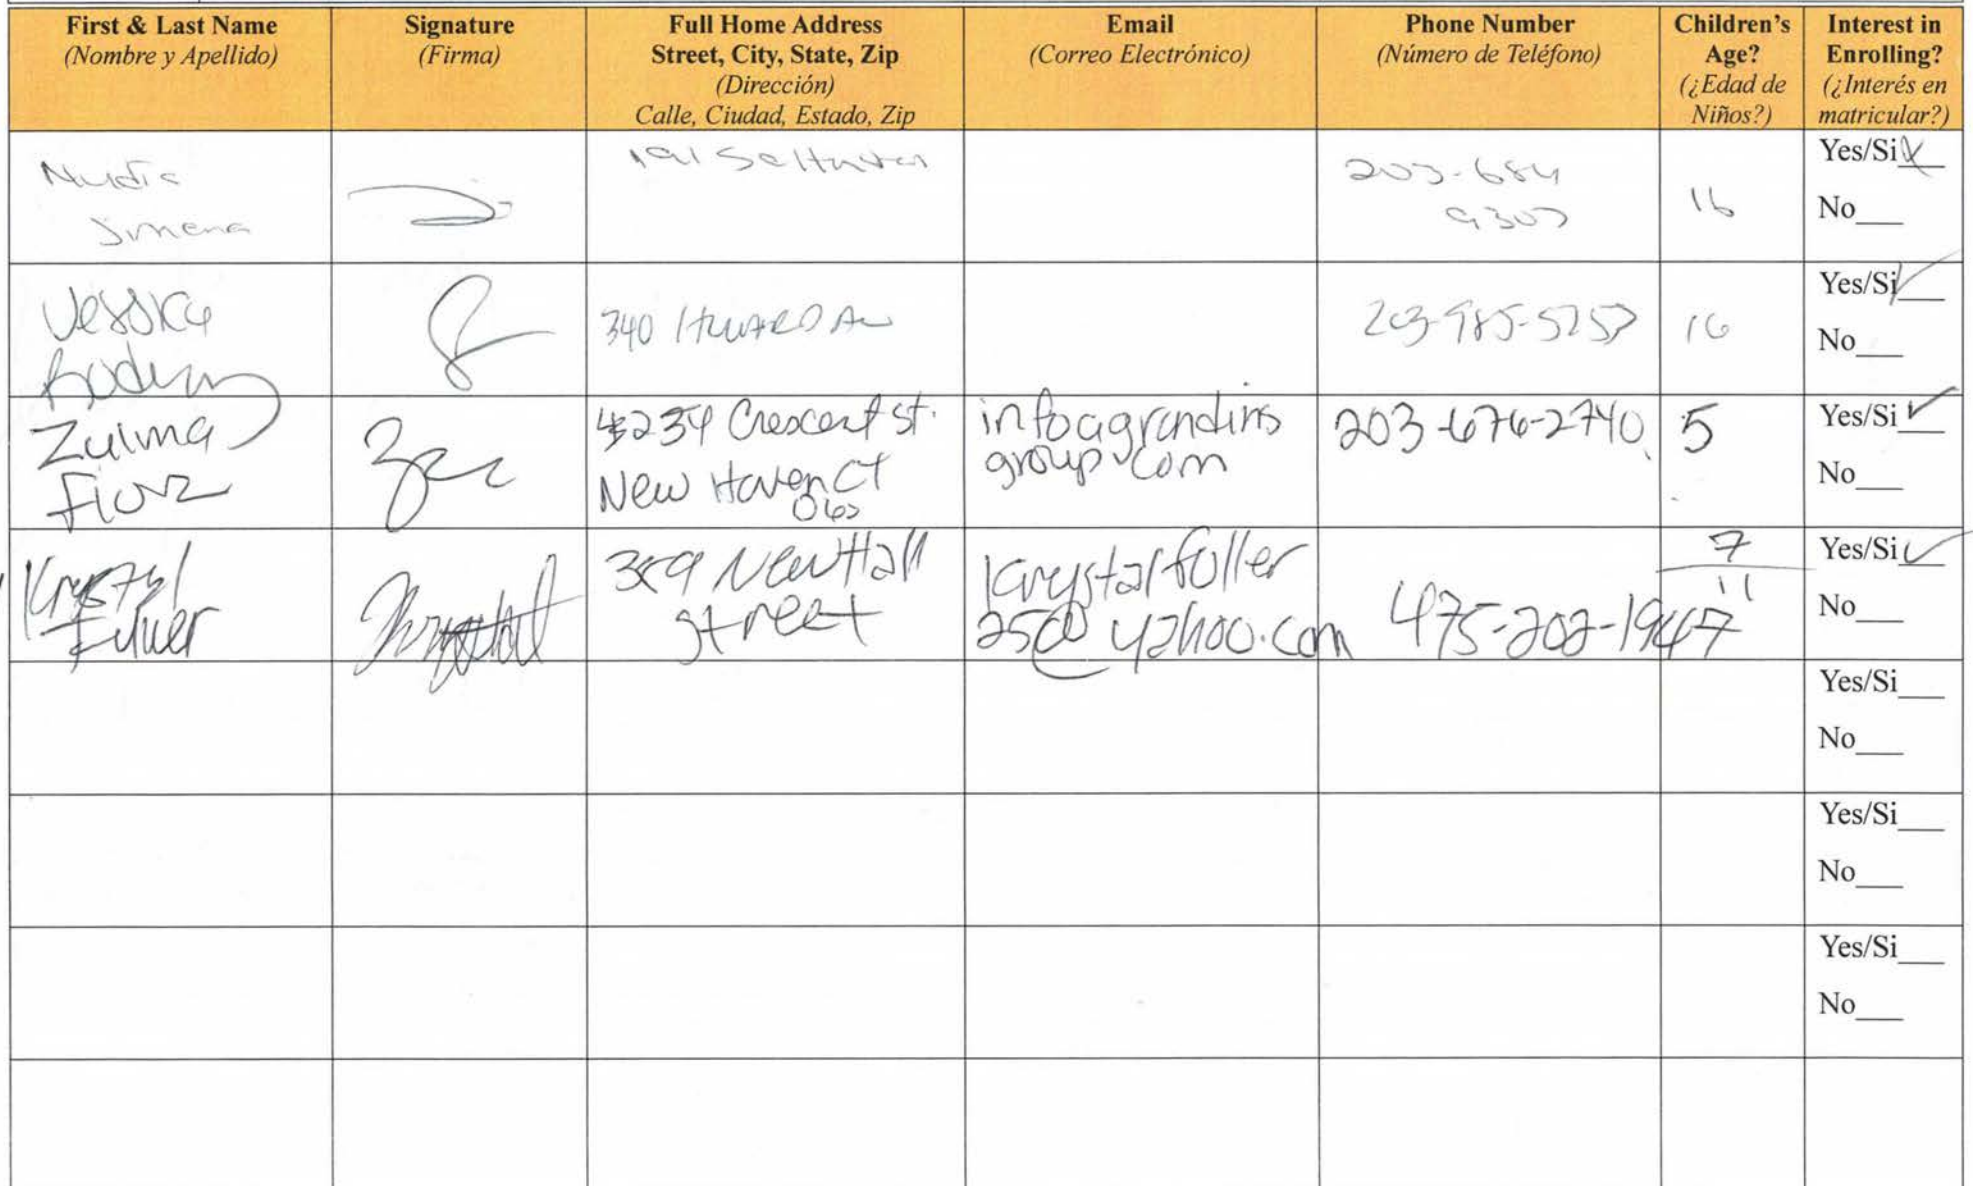 First & Last Name
(Nombre y Apellido)
Signature
(Firma)
Full Home Address
Street, City, State, Zip
(Dirección)
Calle, Ciudad, Estado, Zip
Email
(Correo Electrónico)
Phone Number
(Número de Teléfono)
Children's
Age?
(¿Edad de
Niños?)
Interest in
Enrolling?
(¿Interés en
matricular?)
191
203-684
9307
16
Yes/Si
No
340
16
Yes/Si
No
Zulma
234 Crescent St.
New Haven CT
group.com
203-676-2740
5
Yes/Si
No
Krystal
Fuller
Newhall
street
Krystalfuller
25@yahoo.com
475-202-1947
7
11
Yes/Si
No
Yes/Si
No
Yes/Si
No
Yes/Si
No